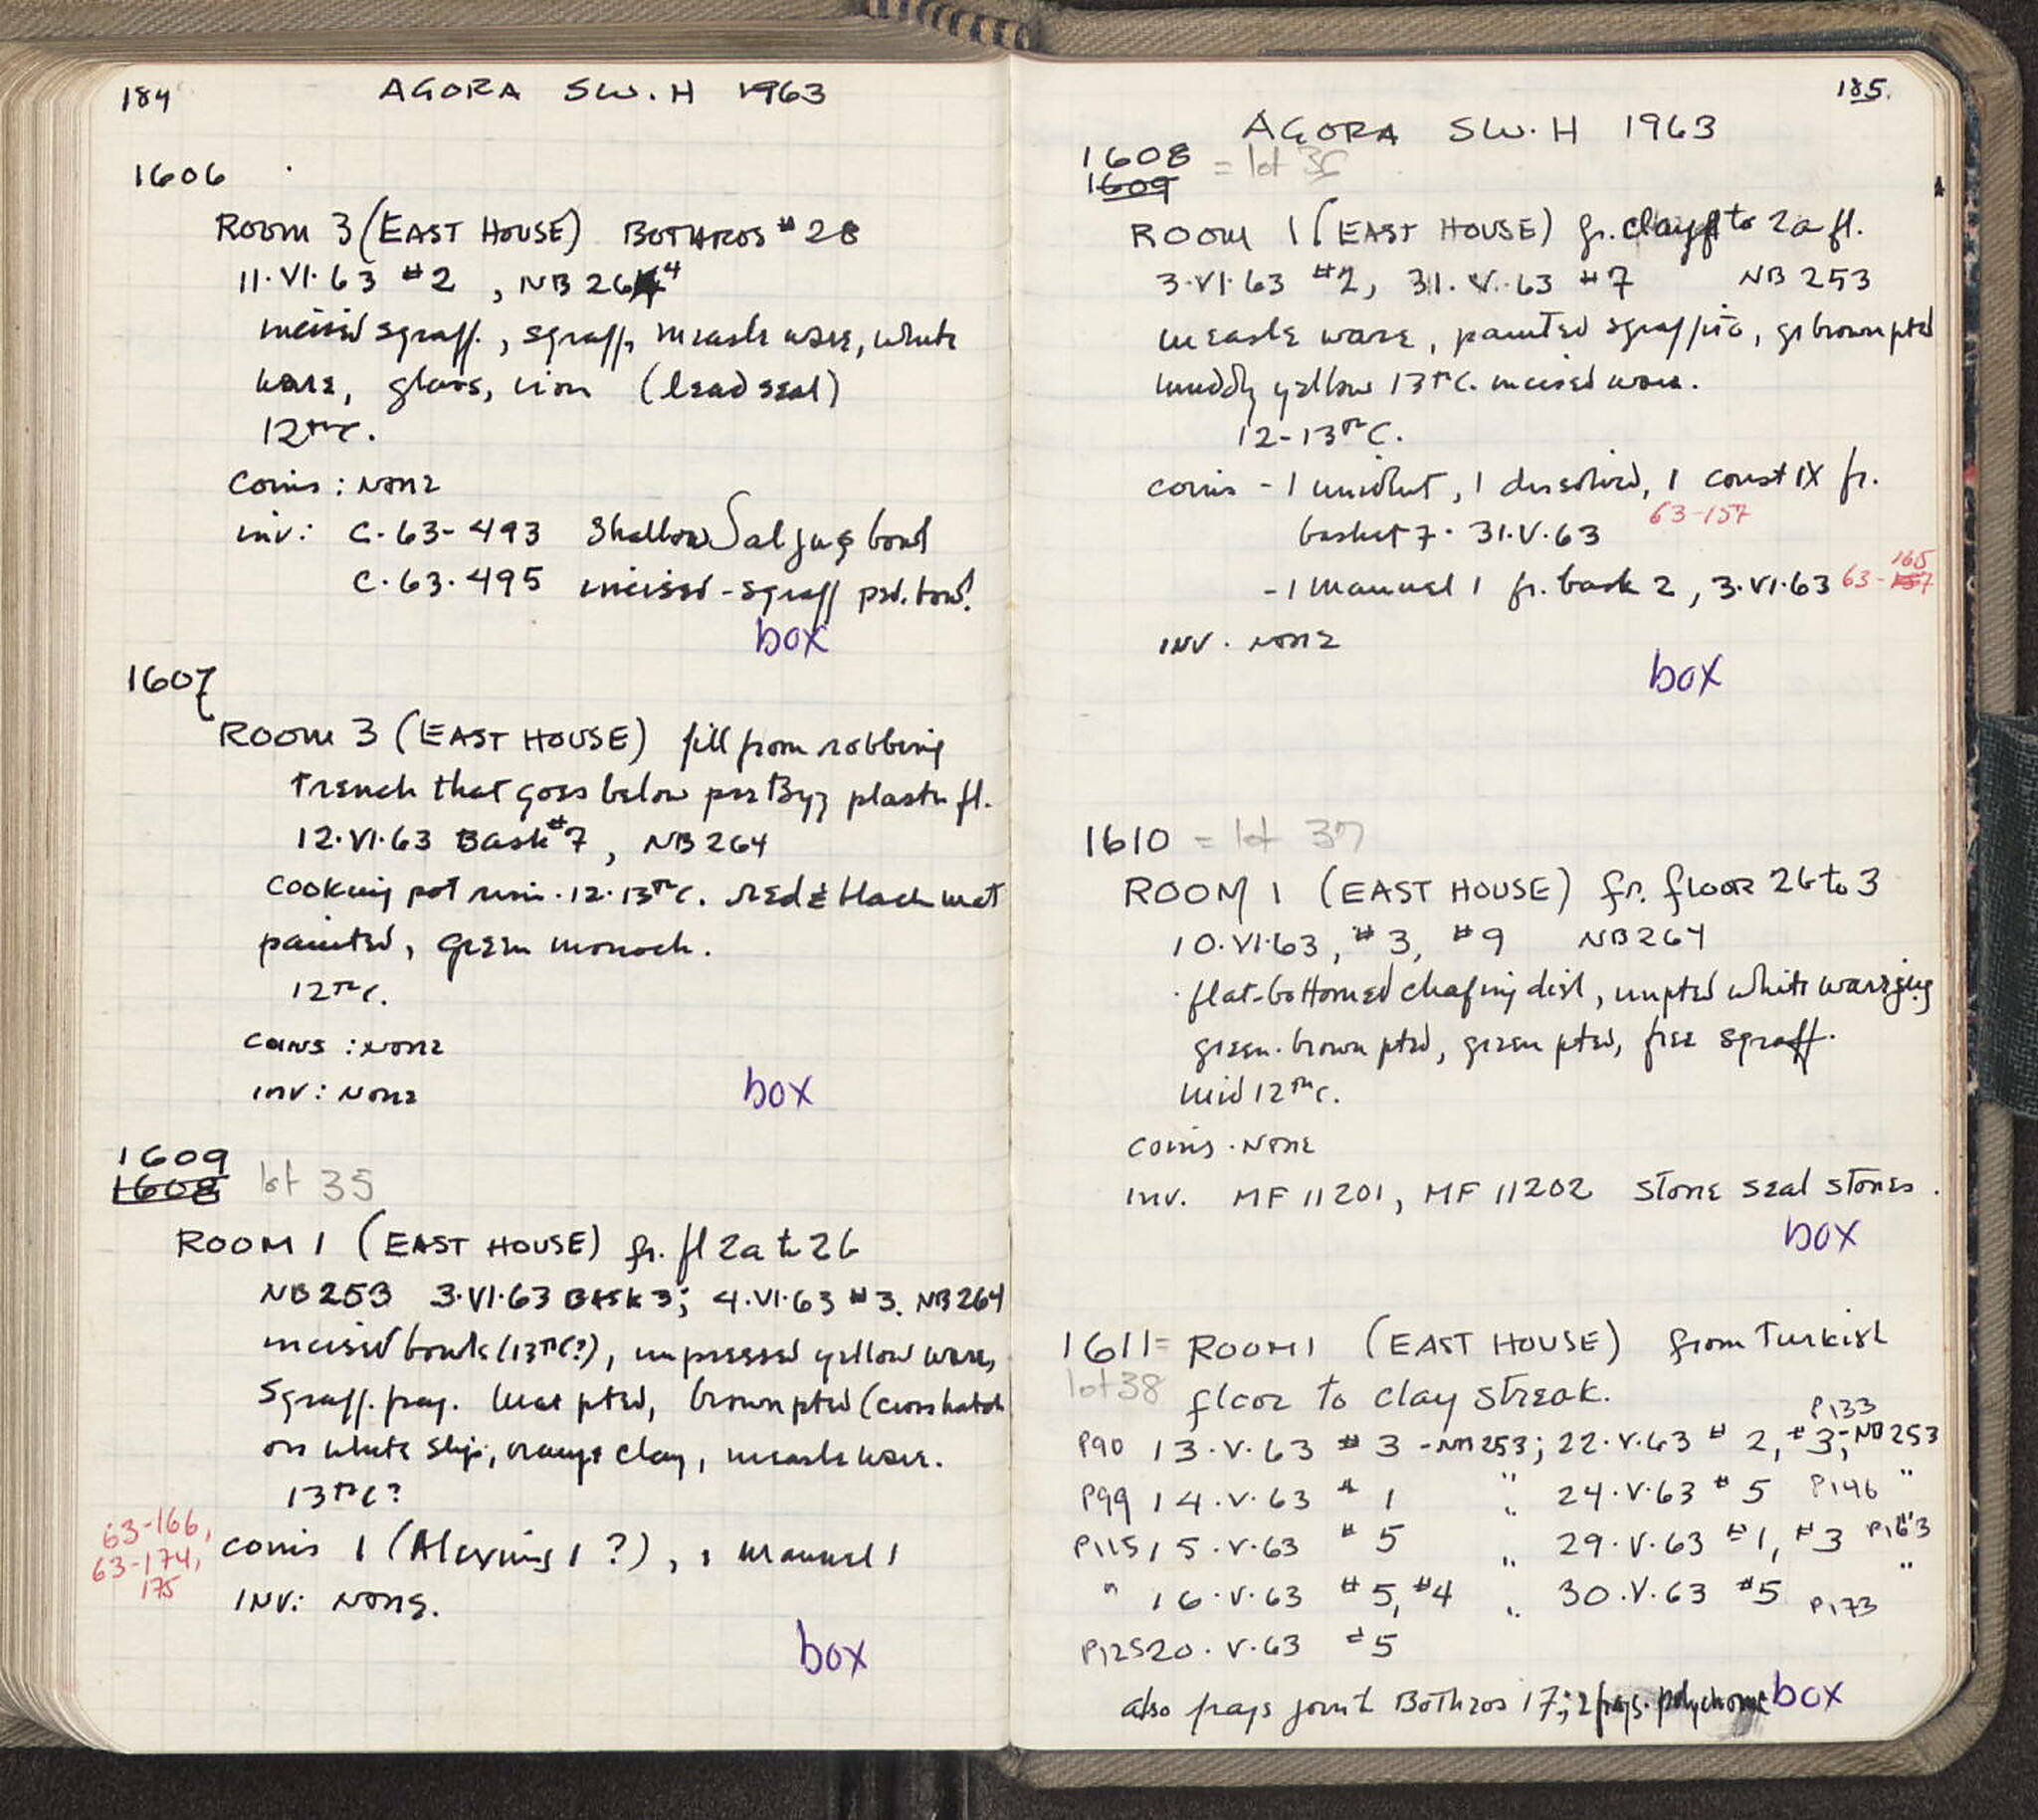 184
AGORA SW. H 1963
1606
ROOM 3 (EAST HOUSE) BOTHROS #28
11.VI.63 #2, NB 264
incised sgraff., sgraff, measle ware, white
ware, glass, iron (lead seal)
12th C.
Coins: None
inv: C-63-493 Shallow bowl
C.63.495 incised-sgraff ptd. bowl
box
1607
ROOM 3 (EAST HOUSE) fill from robbing
trench that goes below post Byz plaster fl.
12.VI.63 Bask #7, NB 264
cooking pot rim. 12-13th C. red & black mat
painted, green monoch.
12th C.
Coins: None
inv: None
box
1609
1608 lot 35
ROOM 1 (EAST HOUSE) fr. fl 2a to 2b
NB 253 3.VI.63 BASK 3; 4.VI.63 #3. NB 264
incised bowls (13th C?), impressed yellow ware,
Sgraff. frag. mat ptd, brown ptd (crosshatch
on white slip, orange clay, measle ware.
13th C?
63-166,
63-174,
175
coins 1 (Alexius I ?), 1 Manuel I
INV: None.
box
185.
AGORA SW. H 1963
1608
1609 = lot 36
ROOM 1 (EAST HOUSE) fr. clay to 2a fl.
3.VI.63 #2, 31.V.63 #7 NB 253
measle ware, painted sgraffito, gr brown ptd
muddy yellow 13th C. incised ware.
12-13th C.
coins - 1 unident, 1 dissolved, 1 Const IX fr.
basket 7. 31.V.63 63-157
- 1 Manuel I fr. bask 2, 3.VI.63 63-165
INV. None
box
1610 = lot 37
ROOM 1 (EAST HOUSE) fr. floor 2b to 3
10.VI.63, #3, #9 NB 264
flat-bottomed chafing dish, unptd white ware jug
green-brown ptd, green ptd, free sgraff.
Mid 12th C.
coins. None
inv. MF 11201, MF 11202 stone seal stones.
box
1611= ROOM 1 (EAST HOUSE) from Turkish
lot 38 floor to clay streak.
P133
P90 13.V.63 #3 -NB253; 22.V.63 #2, #3,-NB253
P99 14.V.63 #1 " 24.V.63 #5 P146 "
P115 15.V.63 #5 " 29.V.63 #1, #3 P163 "
" 16.V.63 #5, #4 " 30.V.63 #5 P173 "
P125 20.V.63 #5
also frags joint Bothros 17; 2 frags. polychrome box